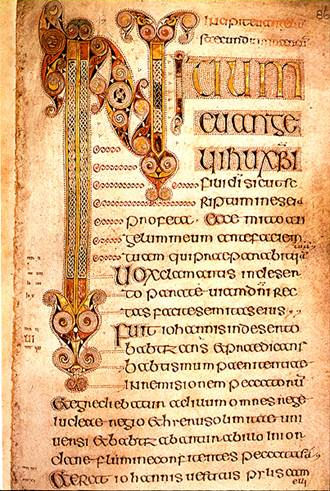 INITIUM
euange
lii ihu xpi
fili di sicut sc
riptum in esei
a profeta Ecce mitto an
gelum meum ante faciem
tuam qui praeparabit
Uox clamantis in deserto
parate uiam dni rec
tas facite semitas eius
Fuit iohannis in deserto
babtizans et praedicans
babtismum paenitentiae
in remisionem peccatorum
Et egrediebatur ad illum omnes rege
iudeae
uersi et babtizabantur ab illo in ior
dane flumine confitentes peccata sua
Et erat iohannis uestitus pylis cam